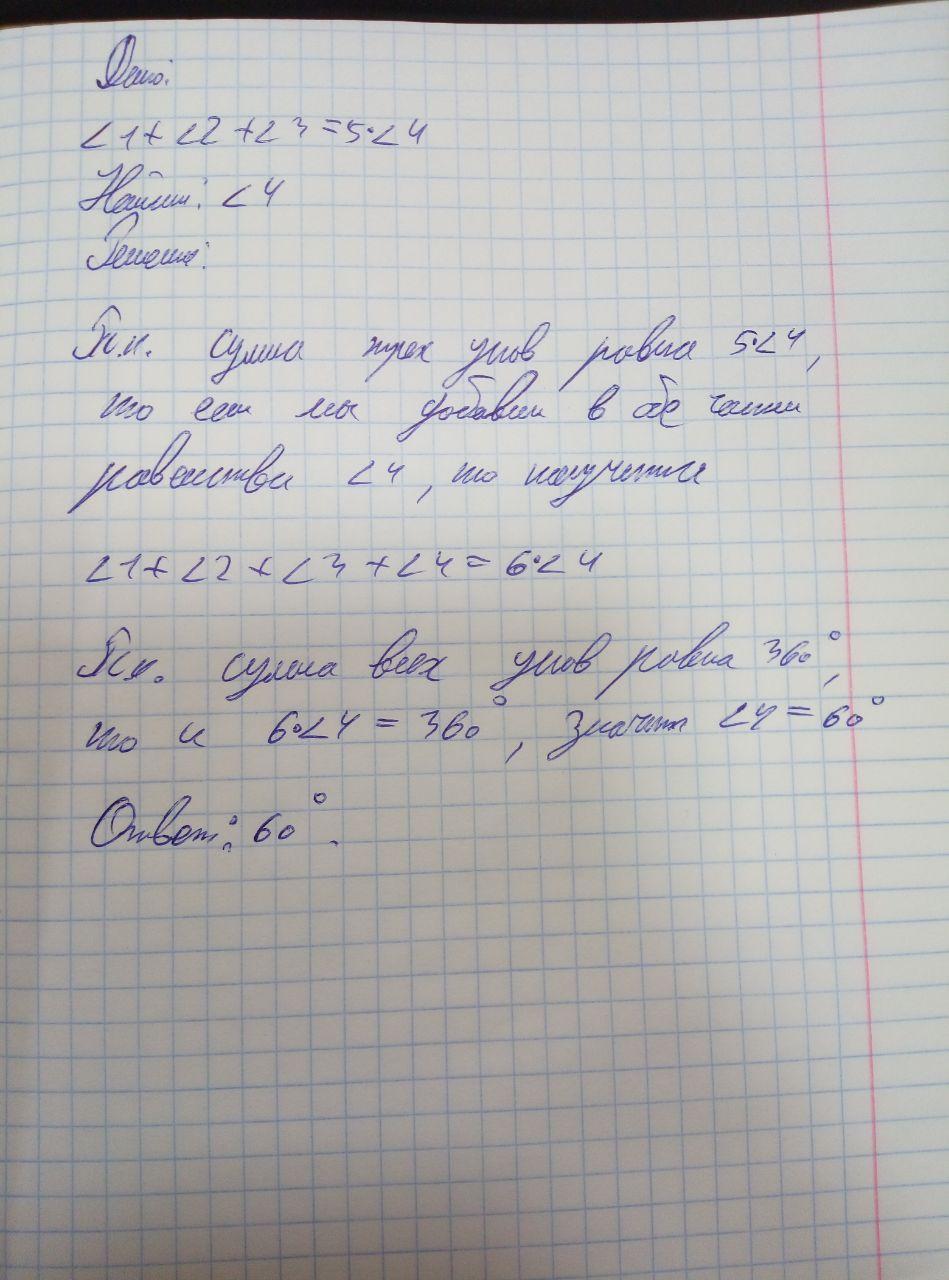 Дано:
∠1+∠2+∠3=5·∠4
Найти: ∠4
Решение:
Т.к. сумма трех углов равна 5·∠4,
то если мы добавим в обе части
равенства ∠4, то получится
∠1+∠2+∠3+∠4=6·∠4
Т.к. сумма всех углов равна 360°,
то и 6·∠4=360°, значит ∠4=60°
Ответ: 60°.